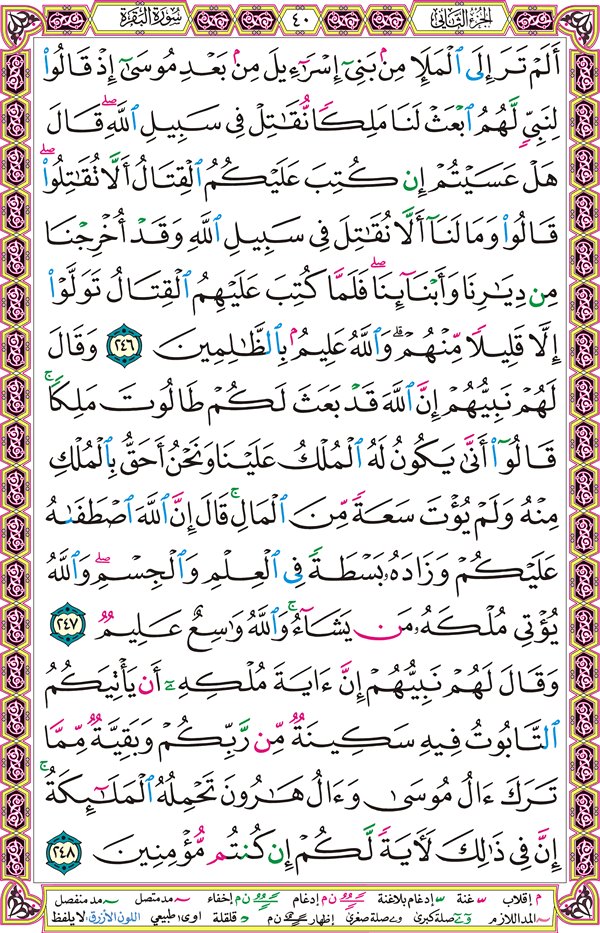 الجزء الثاني ٤٠ سورة البقرة
أَلَمْ تَرَ إِلَى ٱلْمَلَإِ مِنۢ بَنِىٓ إِسْرَٰٓءِيلَ مِنۢ بَعْدِ مُوسَىٰٓ إِذْ قَالُوا۟
لِنَبِىٍّ لَّهُمُ ٱبْعَثْ لَنَا مَلِكًا نُّقَٰتِلْ فِى سَبِيلِ ٱللَّهِ ۖ قَالَ
هَلْ عَسَيْتُمْ إِن كُتِبَ عَلَيْكُمُ ٱلْقِتَالُ أَلَّا تُقَٰتِلُوا۟ ۖ
قَالُوا۟ وَمَا لَنَآ أَلَّا نُقَٰتِلَ فِى سَبِيلِ ٱللَّهِ وَقَدْ أُخْرِجْنَا
مِن دِيَٰرِنَا وَأَبْنَآئِنَا ۖ فَلَمَّا كُتِبَ عَلَيْهِمُ ٱلْقِتَالُ تَوَلَّوْا۟
إِلَّا قَلِيلًا مِّنْهُمْ ۗ وَٱللَّهُ عَلِيمٌۢ بِٱلظَّٰلِمِينَ ٢٤٦ وَقَالَ
لَهُمْ نَبِيُّهُمْ إِنَّ ٱللَّهَ قَدْ بَعَثَ لَكُمْ طَالُوتَ مَلِكًا ۚ
قَالُوٓا۟ أَنَّىٰ يَكُونُ لَهُ ٱلْمُلْكُ عَلَيْنَا وَنَحْنُ أَحَقُّ بِٱلْمُلْكِ
مِنْهُ وَلَمْ يُؤْتَ سَعَةً مِّنَ ٱلْمَالِ ۚ قَالَ إِنَّ ٱللَّهَ ٱصْطَفَىٰهُ
عَلَيْكُمْ وَزَادَهُۥ بَسْطَةً فِى ٱلْعِلْمِ وَٱلْجِسْمِ ۖ وَٱللَّهُ
يُؤْتِى مُلْكَهُۥ مَن يَشَآءُ ۚ وَٱللَّهُ وَٰسِعٌ عَلِيمٌ ٢٤٧
وَقَالَ لَهُمْ نَبِيُّهُمْ إِنَّ ءَايَةَ مُلْكِهِۦٓ أَن يَأْتِيَكُمُ
ٱلتَّابُوتُ فِيهِ سَكِينَةٌ مِّن رَّبِّكُمْ وَبَقِيَّةٌ مِّمَّا
تَرَكَ ءَالُ مُوسَىٰ وَءَالُ هَٰرُونَ تَحْمِلُهُ ٱلْمَلَٰٓئِكَةُ ۚ
إِنَّ فِى ذَٰلِكَ لَءَايَةً لَّكُمْ إِن كُنتُم مُّؤْمِنِينَ ٢٤٨
م إقلاب غنة إدغام بلاغنة ن م إدغام إخفاء مد متصل مد منفصل
المد اللازم صلة كبرى صلة صغرى إظهار ن م قلقلة اوى طبيعي اللون الأزرق: لا يلفظ